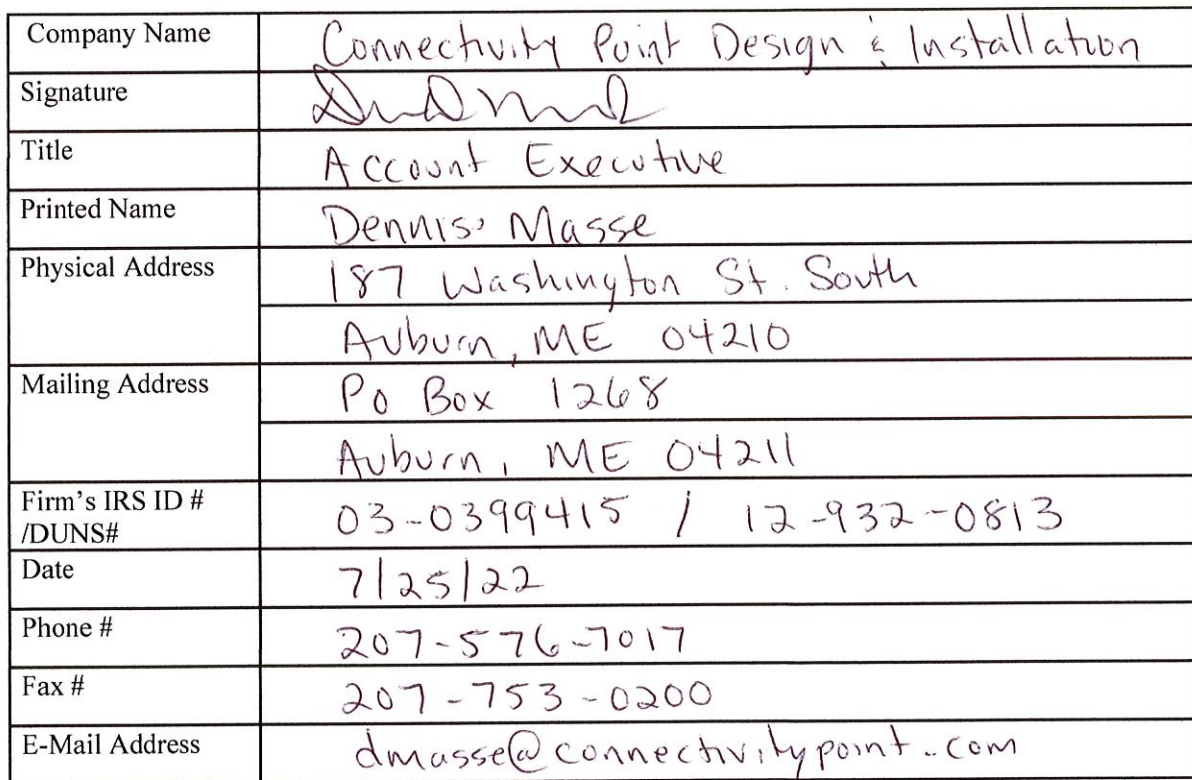 Company Name Connectivity Point Design & Installation
Signature
Title Account Executive
Printed Name Dennis Masse
Physical Address 187 Washington St. South
Auburn, ME 04210
Mailing Address Po Box 1268
Auburn, ME 04211
Firm's IRS ID # 03-0399415 / 12-932-0813
/DUNS#
Date 7/25/22
Phone # 207-576-7017
Fax # 207-753-0200
E-Mail Address dmasse@connectivitypoint.com